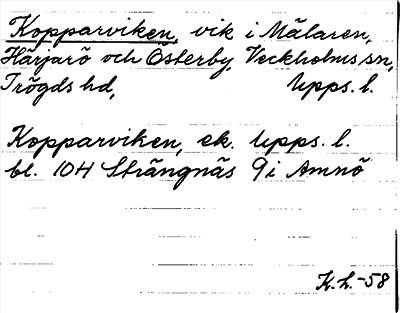 Kopparviken, vik i Mälaren,
Härjarö och Österby, Veckholms sn,
Trögds hd, Upps. l.
Kopparviken, ek. Upps. l.
bl. 104 Strängnäs 9 i Amnö
K.L.-58